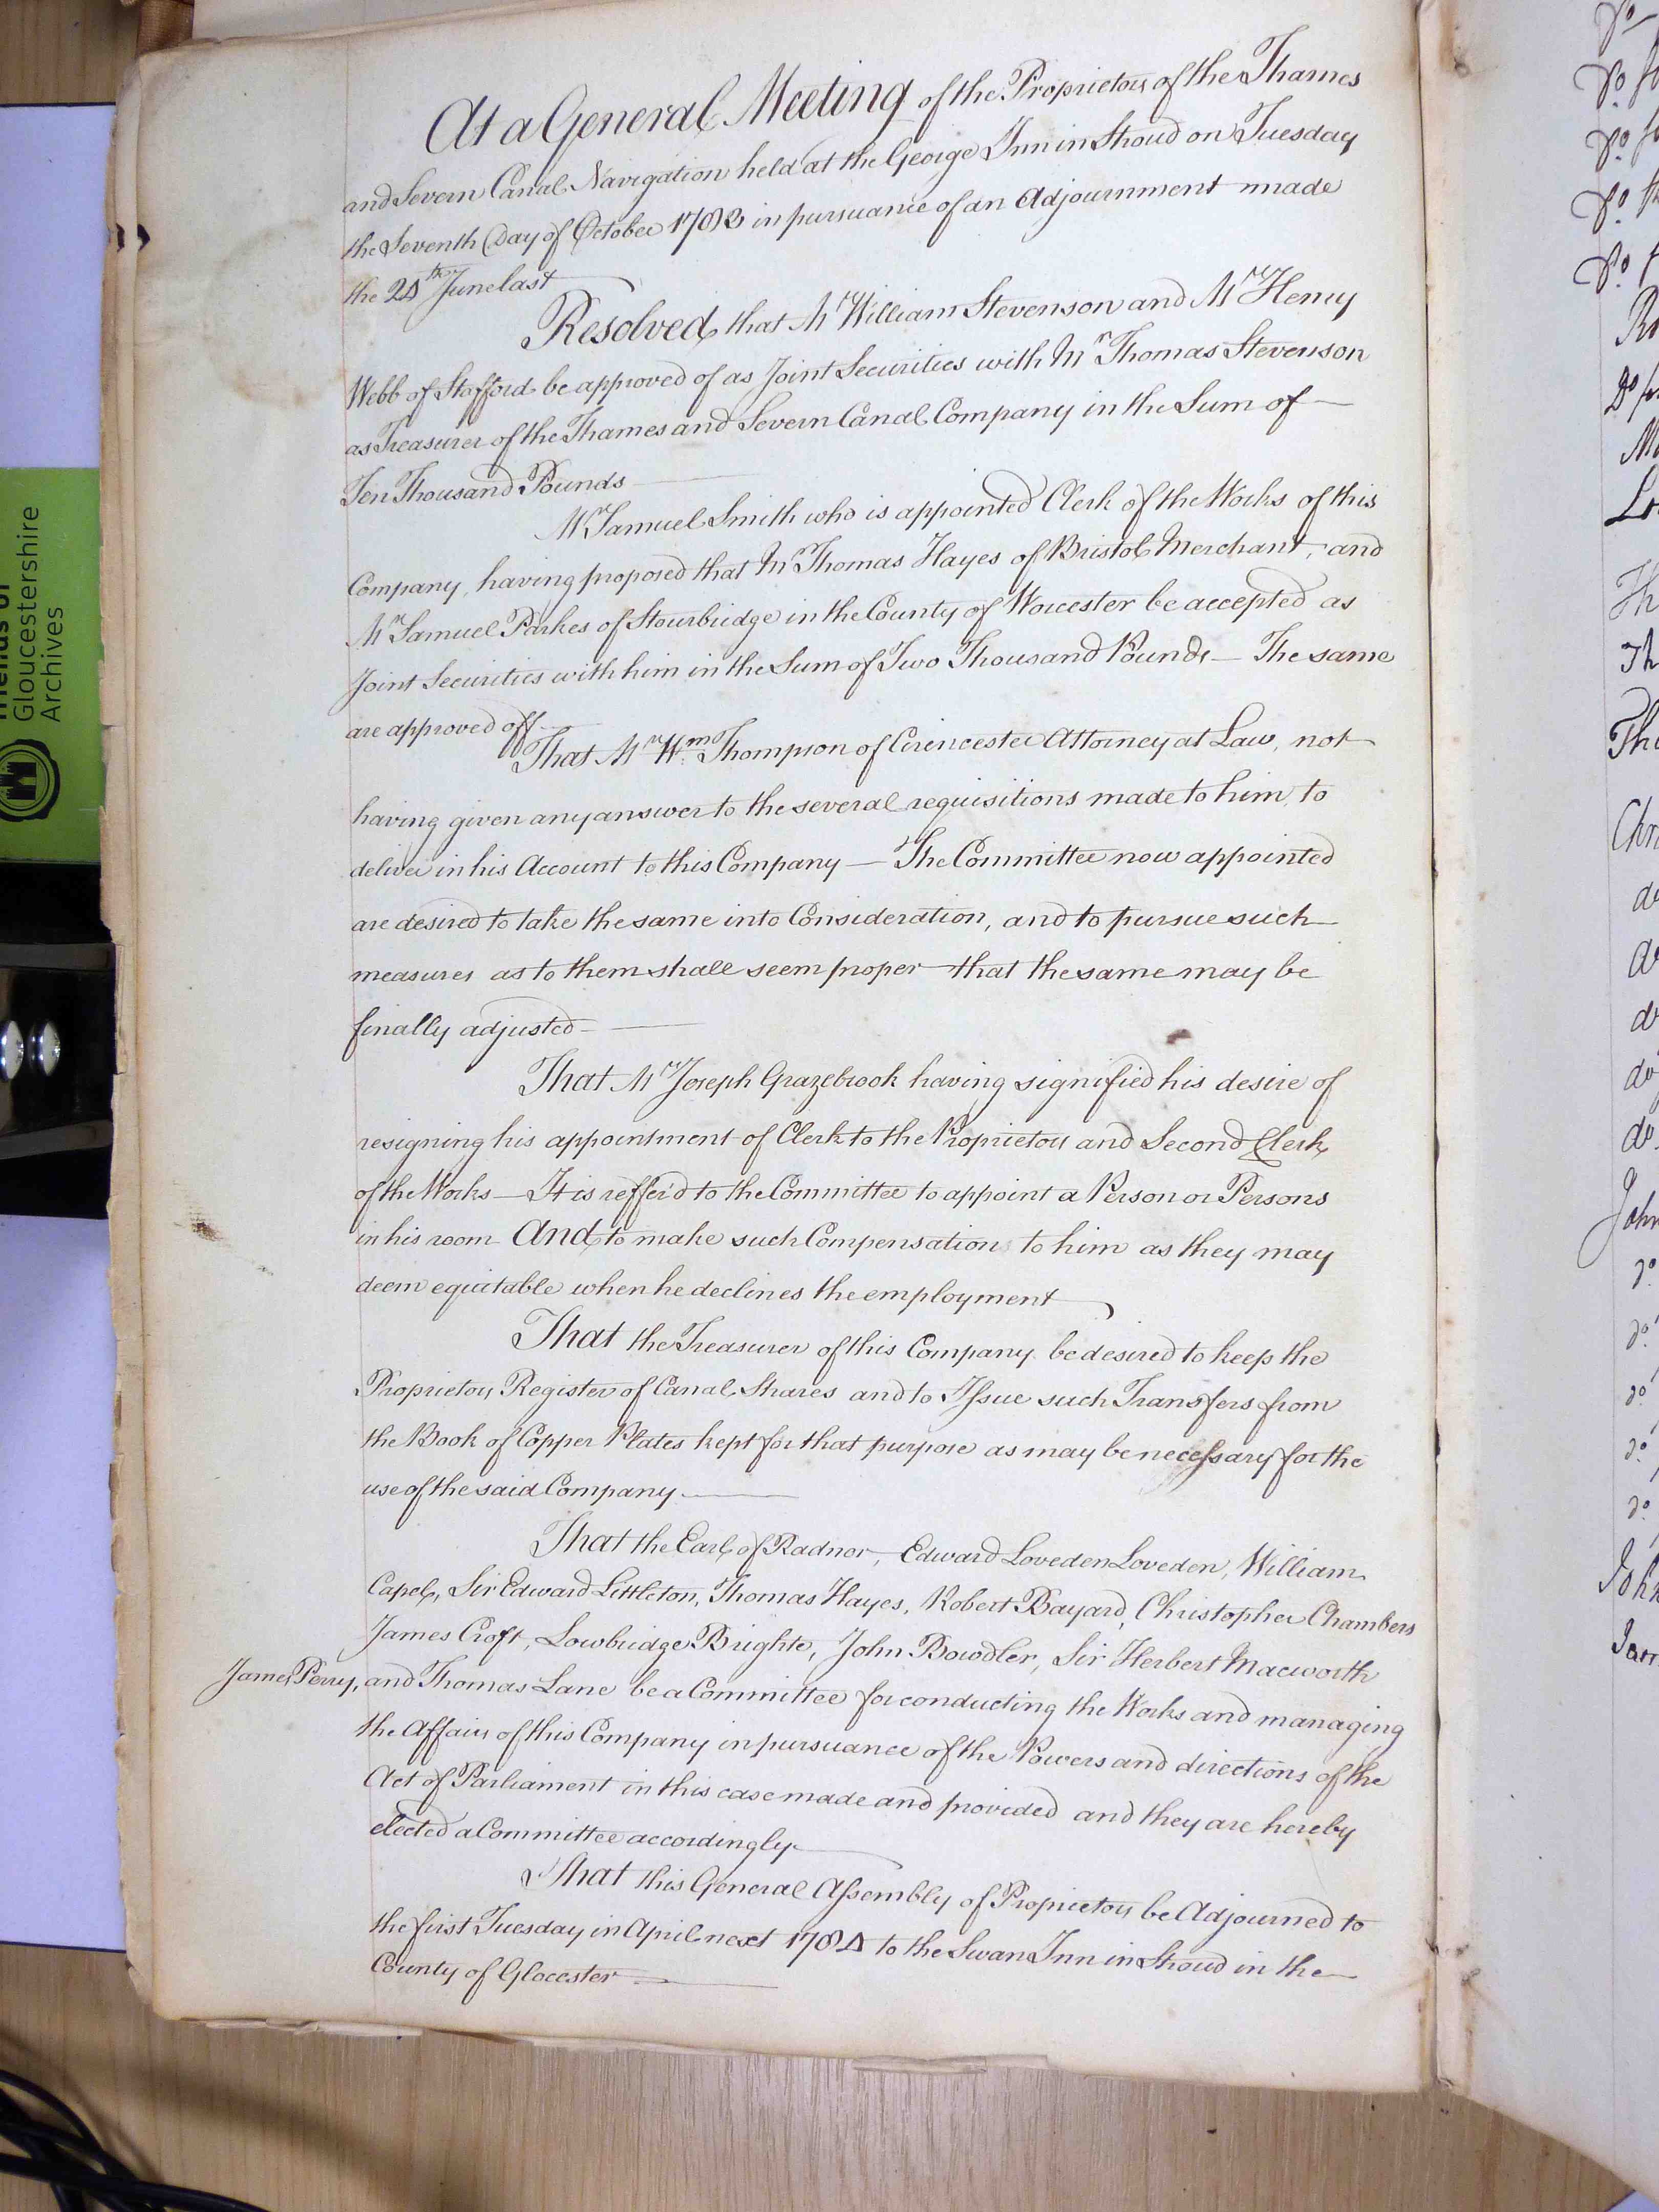 At a General Meeting of the Proprietors of the Thames
and Severn Canal Navigation held at the George Inn in Stroud on Tuesday
the Seventh Day of October 1783 in pursuance of an Adjournment made
the 24th June last
Resolved that Mr William Stevenson and Mr Henry
Webb of Stafford be approved of as Joint Securities with Mr Thomas Stevenson
as Treasurer of the Thames and Severn Canal Company in the Sum of —
Ten Thousand Pounds —
Mr Samuel Smith who is appointed Clerk of the Works of this
Company, having proposed that Mr Thomas Hayes of Bristol Merchant, and
Mr Samuel Parkes of Stourbridge in the County of Worcester be accepted as
Joint Securities with him in the Sum of Two Thousand Pounds — The same
are approved off —
That Mr Wm. Thompson of Cirencester Attorney at Law, not
having given any answer to the several requisitions made to him, to
deliver in his Account to this Company — The Committee now appointed
are desired to take the same into Consideration, and to pursue such
measures as to them shall seem proper that the same may be
finally adjusted —
That Mr Joseph Grazebrook having signified his desire of
resigning his appointment of Clerk to the Proprietors and Second Clerk
of the Works — It is reffer'd to the Committee to appoint a Person or Persons
in his room And to make such Compensation to him as they may
deem equitable when he declines the employment
That the Treasurer of this Company be desired to keep the
Proprietors Register of Canal Shares and to Issue such Transfers from
the Book of Copper Plates kept for that purpose as may be necessary for the
use of the said Company —
That the Earl of Radnor, Edward Loveden Loveden, William
Capel, Sir Edward Littleton, Thomas Hayes, Robert Bayard, Christopher Chambers
James Croft, Lowbridge Brighte, John Bowdler, Sir Herbert Macworth
James Perry, and Thomas Lane be a Committee for conducting the Works and managing
the Affairs of this Company in pursuance of the Powers and directions of the
Act of Parliament in this case made and provided and they are hereby
elected a Committee accordingly —
That this General Assembly of Proprietors be Adjourned to
the first Tuesday in April next 1784 to the Swan Inn in Stroud in the —
County of Glocester —
Gloucestershire
Archives